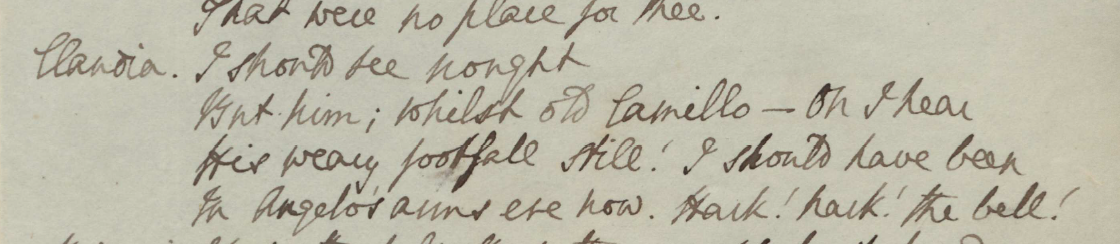 That were no place for thee.
Claudia. I should see nought
But him; whilst old Camillo – Oh I hear
His weary footfall still! I should have been
In Angelo's arms ere now. Hark! hark! the bell!